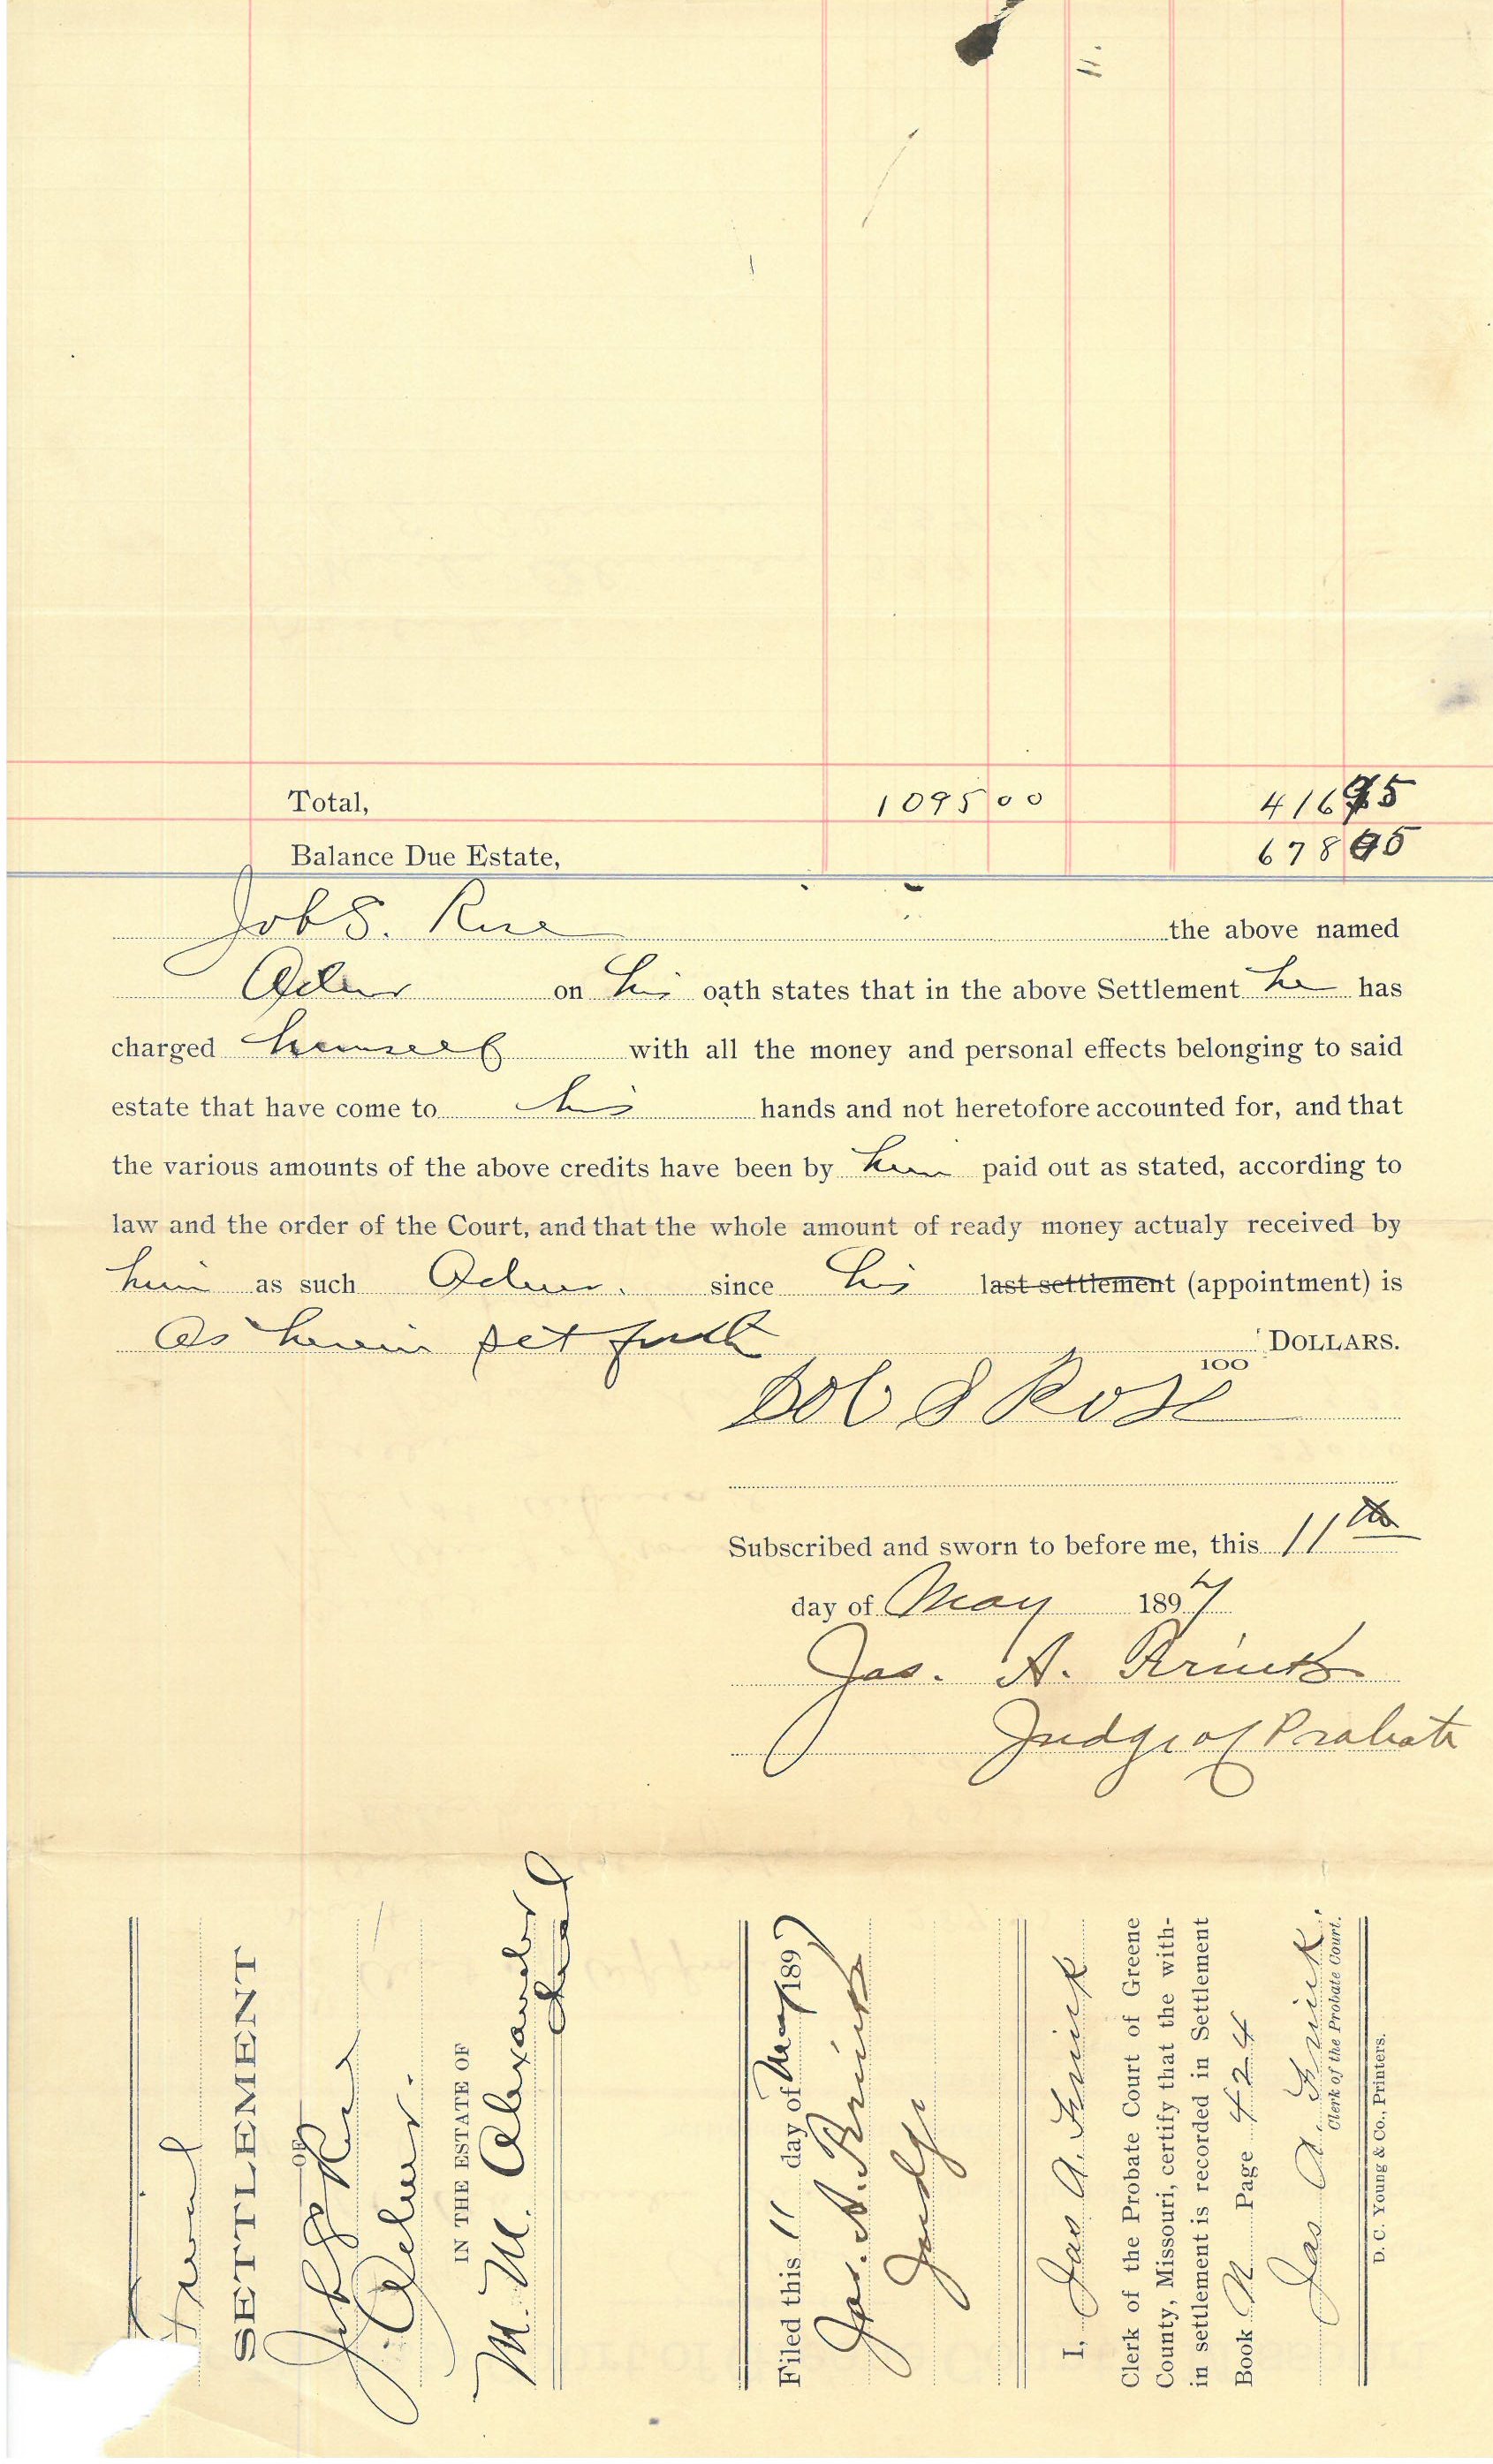 Total, 1095 00 416 95
Balance Due Estate, 678 05
Job S. Rose the above named
Admr on his oath states that in the above Settlement he has
charged himself with all the money and personal effects belonging to said
estate that have come to his hands and not heretofore accounted for, and that
the various amounts of the above credits have been by him paid out as stated, according to
law and the order of the Court, and that the whole amount of ready money actualy received by
him as such Admr. since his last settlement (appointment) is
As herein set forth DOLLARS.
100
Job S Rose
Subscribed and sworn to before me, this 11th
day of May 1897
Jas. A. Frink
Judge of Probate
Final
SETTLEMENT
OF
Job S Rose
Admr.
IN THE ESTATE OF
M. M. Alexander
Decd
Filed this 11 day of May 1897
Jas. A. Frink
Judge
I, Jas A. Frink
Clerk of the Probate Court of Greene
County, Missouri, certify that the with-
in settlement is recorded in Settlement
Book N Page 424
Jas A. Frink.
Clerk of the Probate Court.
D. C. Young & Co., Printers.